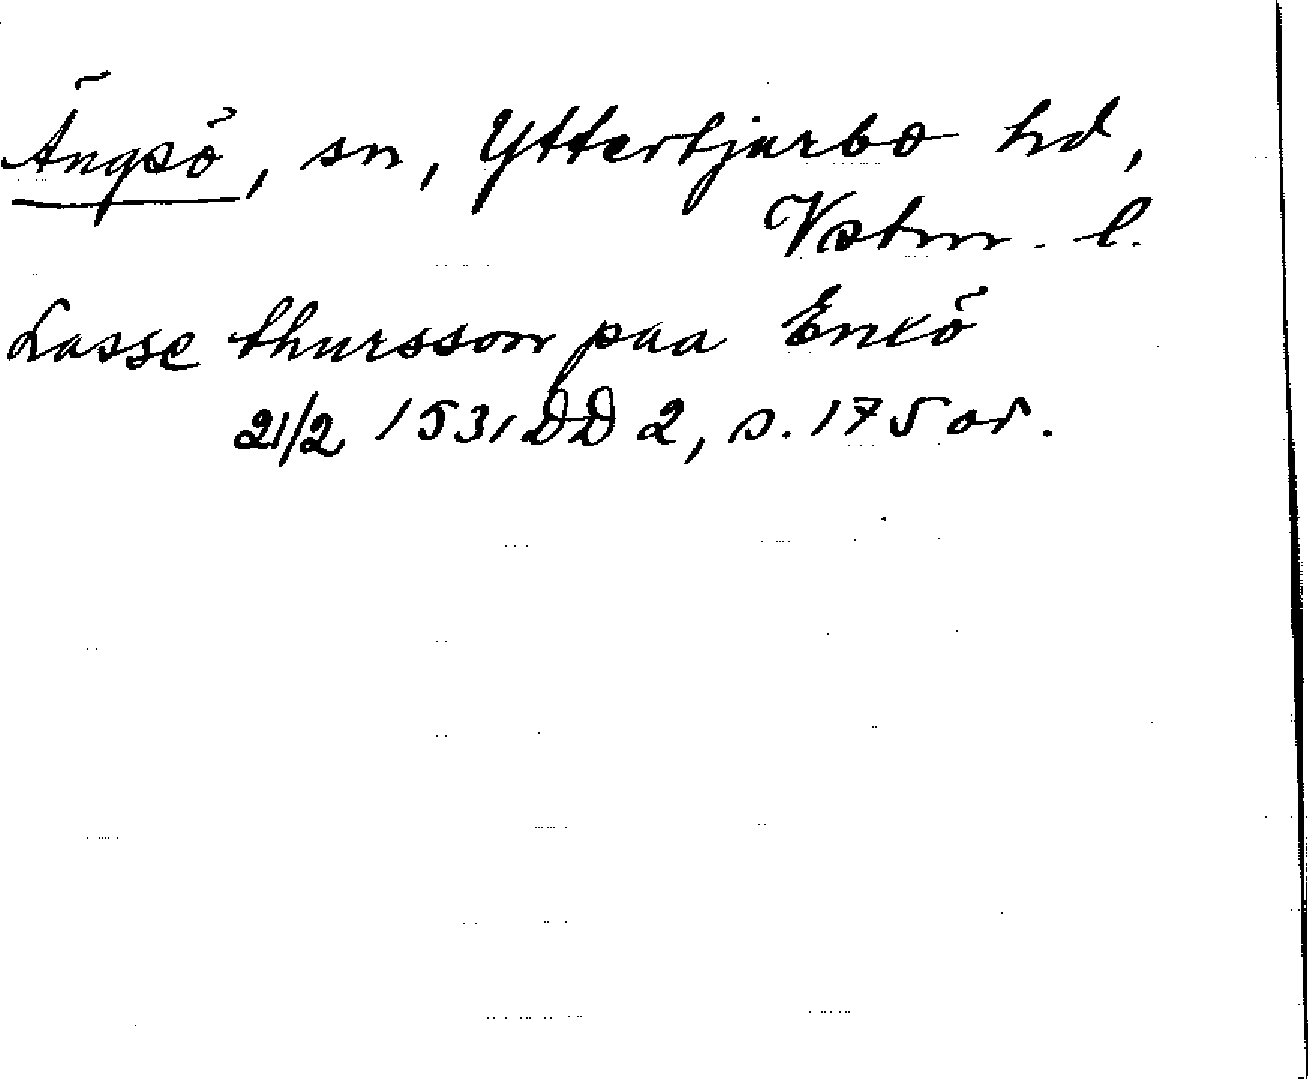 Ängsö, sn, Yttertjurbo hd,
Vstm. l.
Lasse thursson paa Enxö
21/2 1531 DD 2, s. 175 or.